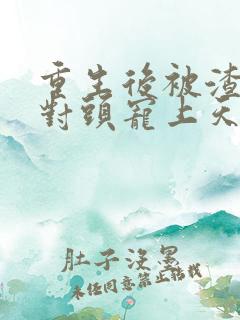 重生後被渣
對頭寵上天
肚子沒墨
未任同意禁止轉載